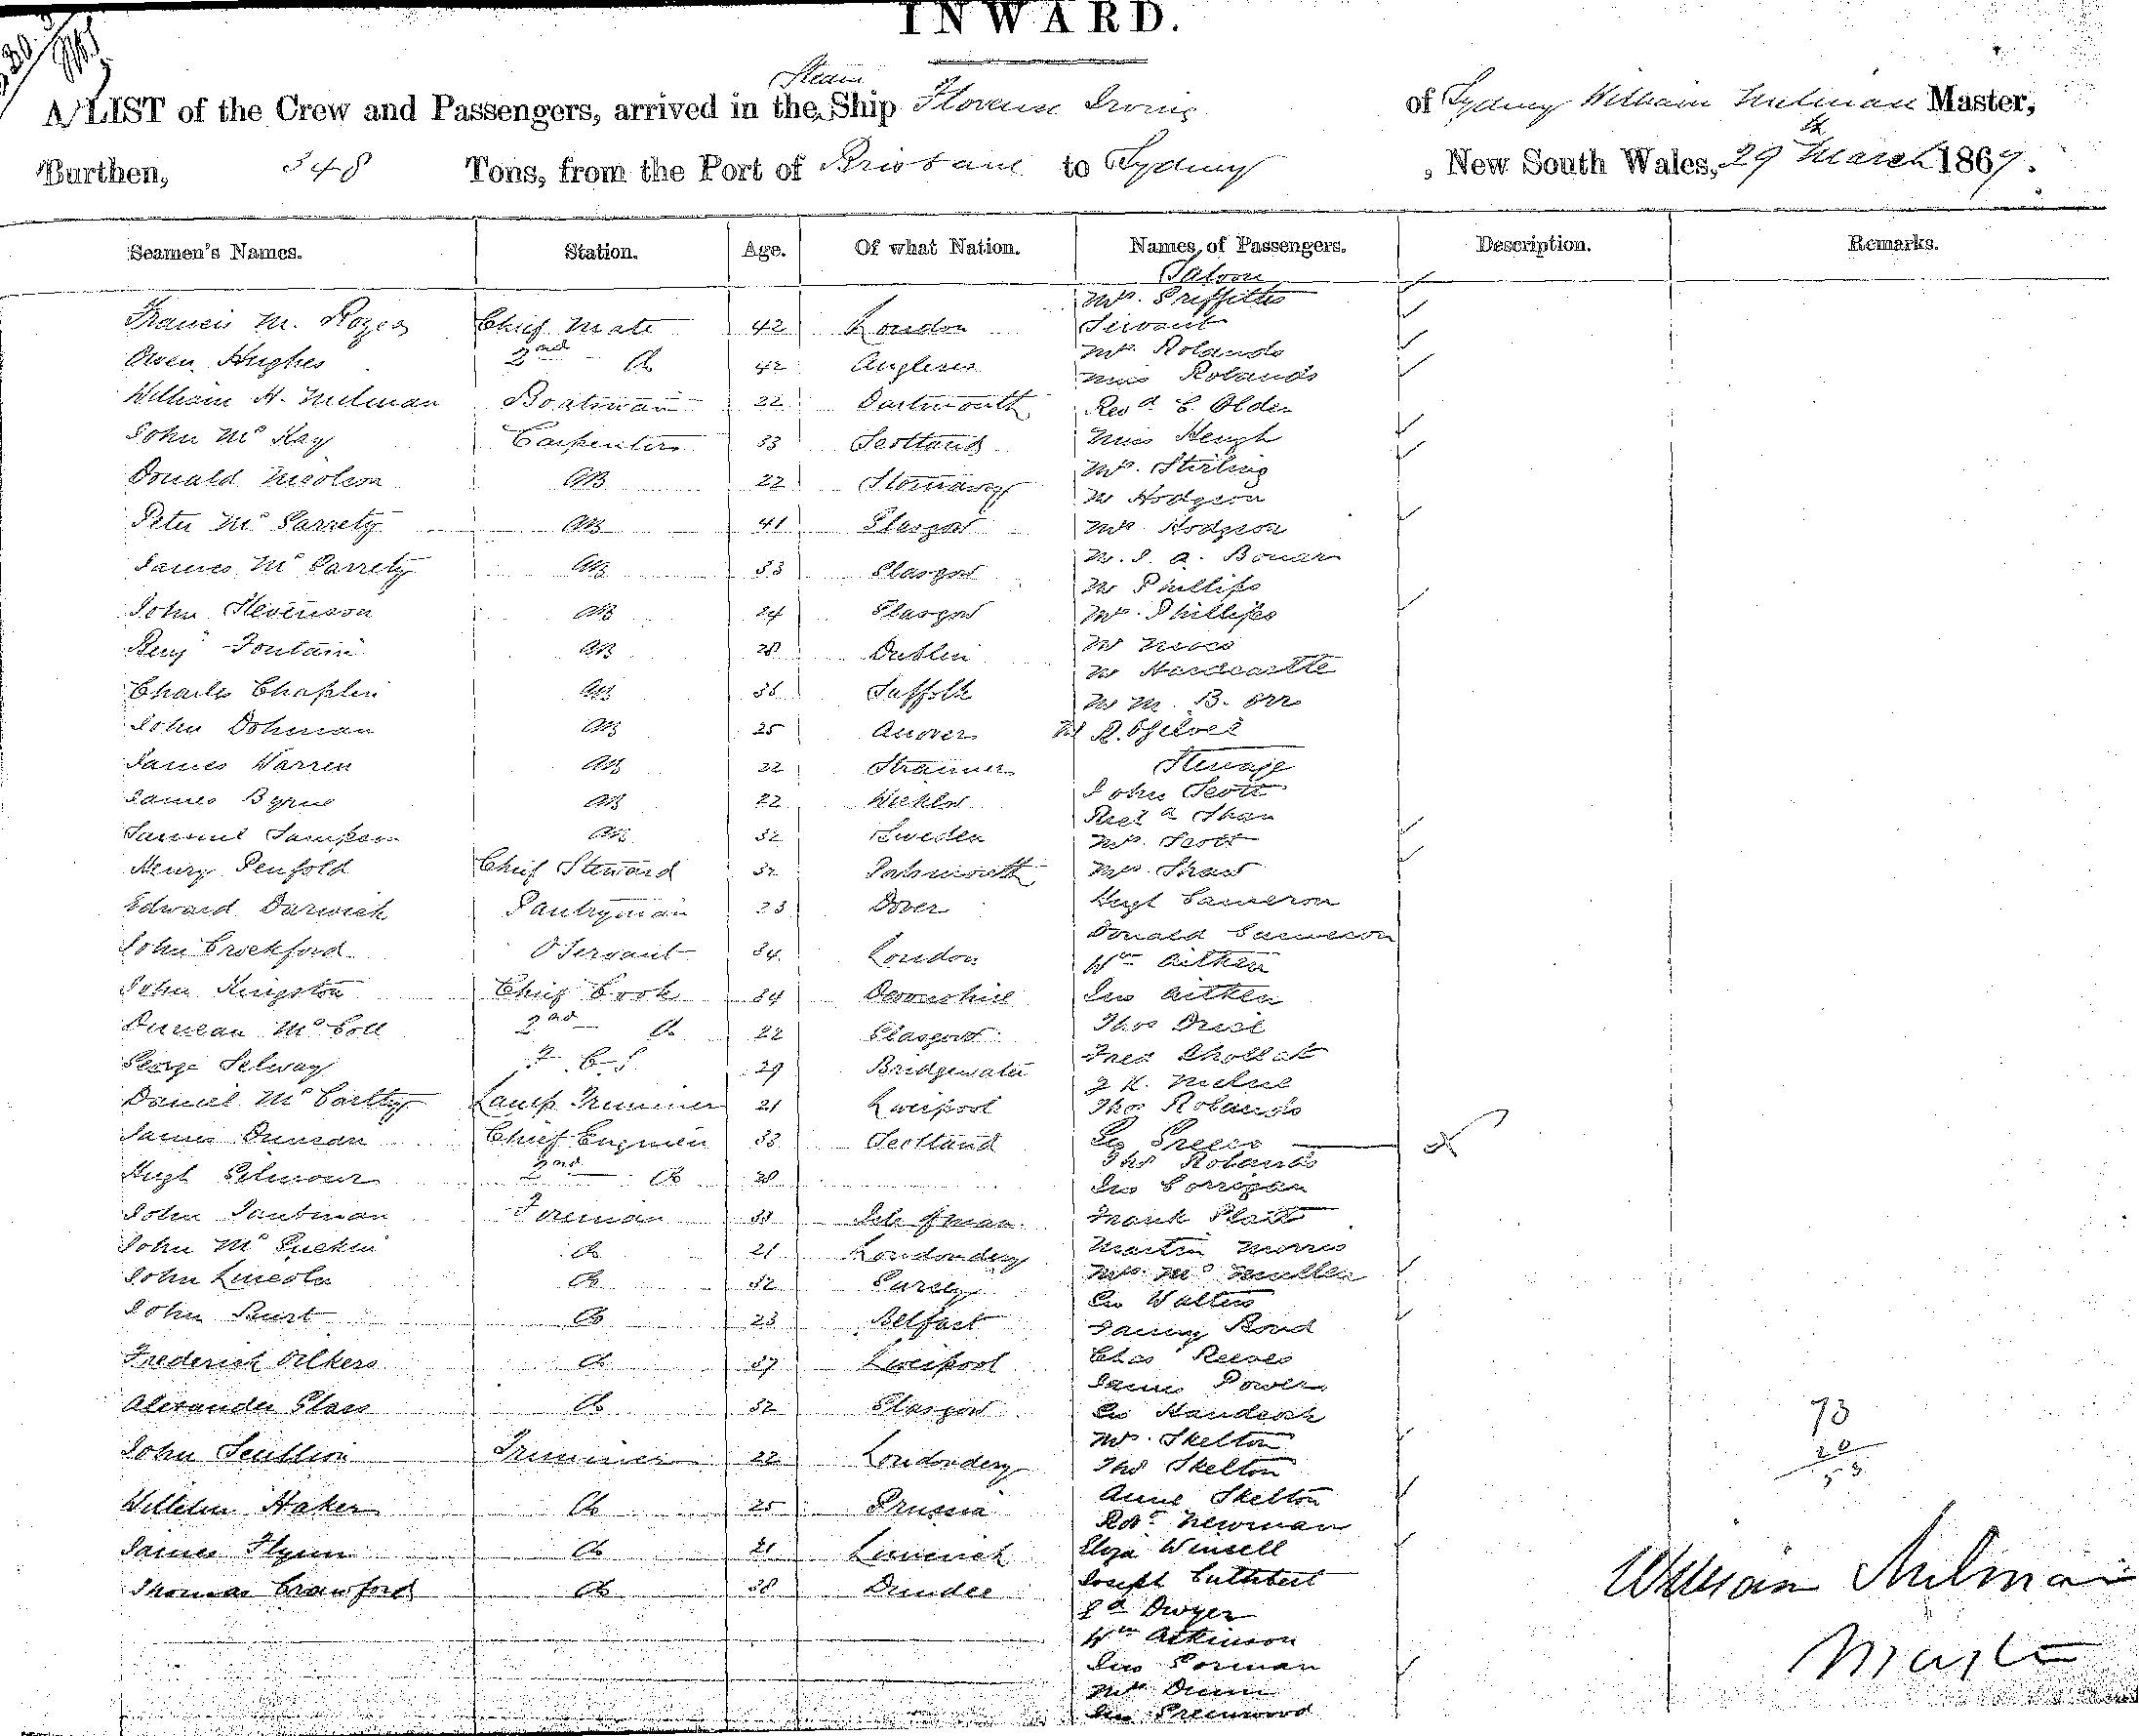 INWARD.
A LIST of the Crew and Passengers, arrived in the Steam Ship Florence Irving of Sydney William Milman Master,
Burthen, 348 Tons, from the Port of Brisbane to Sydney, New South Wales, 29th March 1867.
Seamen's Names. Station. Age. Of what Nation. Names of Passengers. Description. Remarks.
Saloon
Mrs. Griffiths
Francis M. Chief Mate 42 London Servant
Mrs. Rolands
Owen Hughes 2nd Do 42 Anglesea
Miss Rolands
William H. Milman Boatswain 22 Dartmouth Revd. C. Olden
John McKay Carpenter 33 Scotland Miss Heugh
Mrs. Stirling
Donald Nicolson AB 22 Stornaway
Mr Hodgson
Peter McGarrety AB 41 Glasgow Mrs Hodgson
Mr. J. A. Bonar
James McGarrety AB 33 Glasgow
Mr Phillips
John Stevenson AB 24 Glasgow Mrs. Phillips
Benj Fontain AB 28 Dublin Mr
Mr Hardcastle
Charles Chaplin AB 36 Suffolk
Mr M. B. Orr
John Dohman AB 25 Anover Mr R.
James Warren AB 22 Stranner Steerage
John Scott
James Byrne AB 22 Wicklow
Richd Shaw
Samuel Sampson AB 32 Sweden Mrs. Scott
Henry Penfold Chief Steward 32 Mrs. Shaw
Edward Darwich Pantryman 23 Dover Hugh Cameron
Donald Cameron
John Crockford Servant 34 London
Wm Aitken
John Kingston Chief Cook 34 Devonshire Jno Aitken
Duncan McColl 2nd Do 22 Glasgow Thos
George Selway F. C. S. 29 Bridgewater Fred
Daniel McCarthy Lamp Trimmer 21 Liverpool
Thos Rolands
James Duncan Chief Engineer 33 Scotland
Thos Rolands
Hugh Gilmour 2nd Do 28
Jno Corrigan
John Santman Foreman 33 Isle of Man Frank Platt
John McGuckin Do 21 Londonderry Martin Morris
John Lincoln Do 32 Mrs. McMullen
Jno Walters
John Burt Do 23 Belfast
Fanny Bond
Frederick Do 37 Liverpool Chas Reeves
James Power
Alexander Glass Do 32 Glasgow
Mrs. Skelton
John Scullion Trimmer 22 Londonderry
Thos Skelton
Anne Skelton
Wilhelm Haker Do 25 Prussia
Robt. Newman
James Flynn Do 21 Limerick Eliza Winsell
Thomas Crawford Do 38 Dundee Joseph Cuthbert
Dwyer
Wm Atkinson
Jno Gorman
Mrs Dunn
Jno Greenwood
73
20
53
William Milman
Master